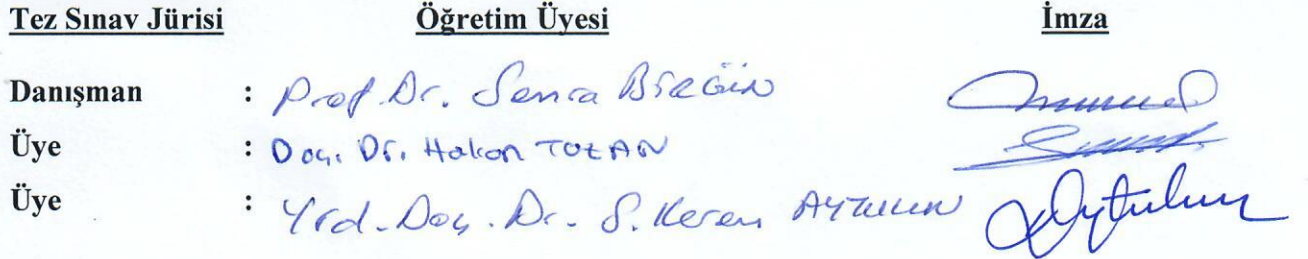 Tez Sınav Jürisi Öğretim Üyesi İmza
Danışman : Prof. Dr. Semra BİRGÜN
Üye : Doç. Dr. Hakan TOZAN
Üye : Yrd. Doç. Dr. S. Kerem AYTULUN